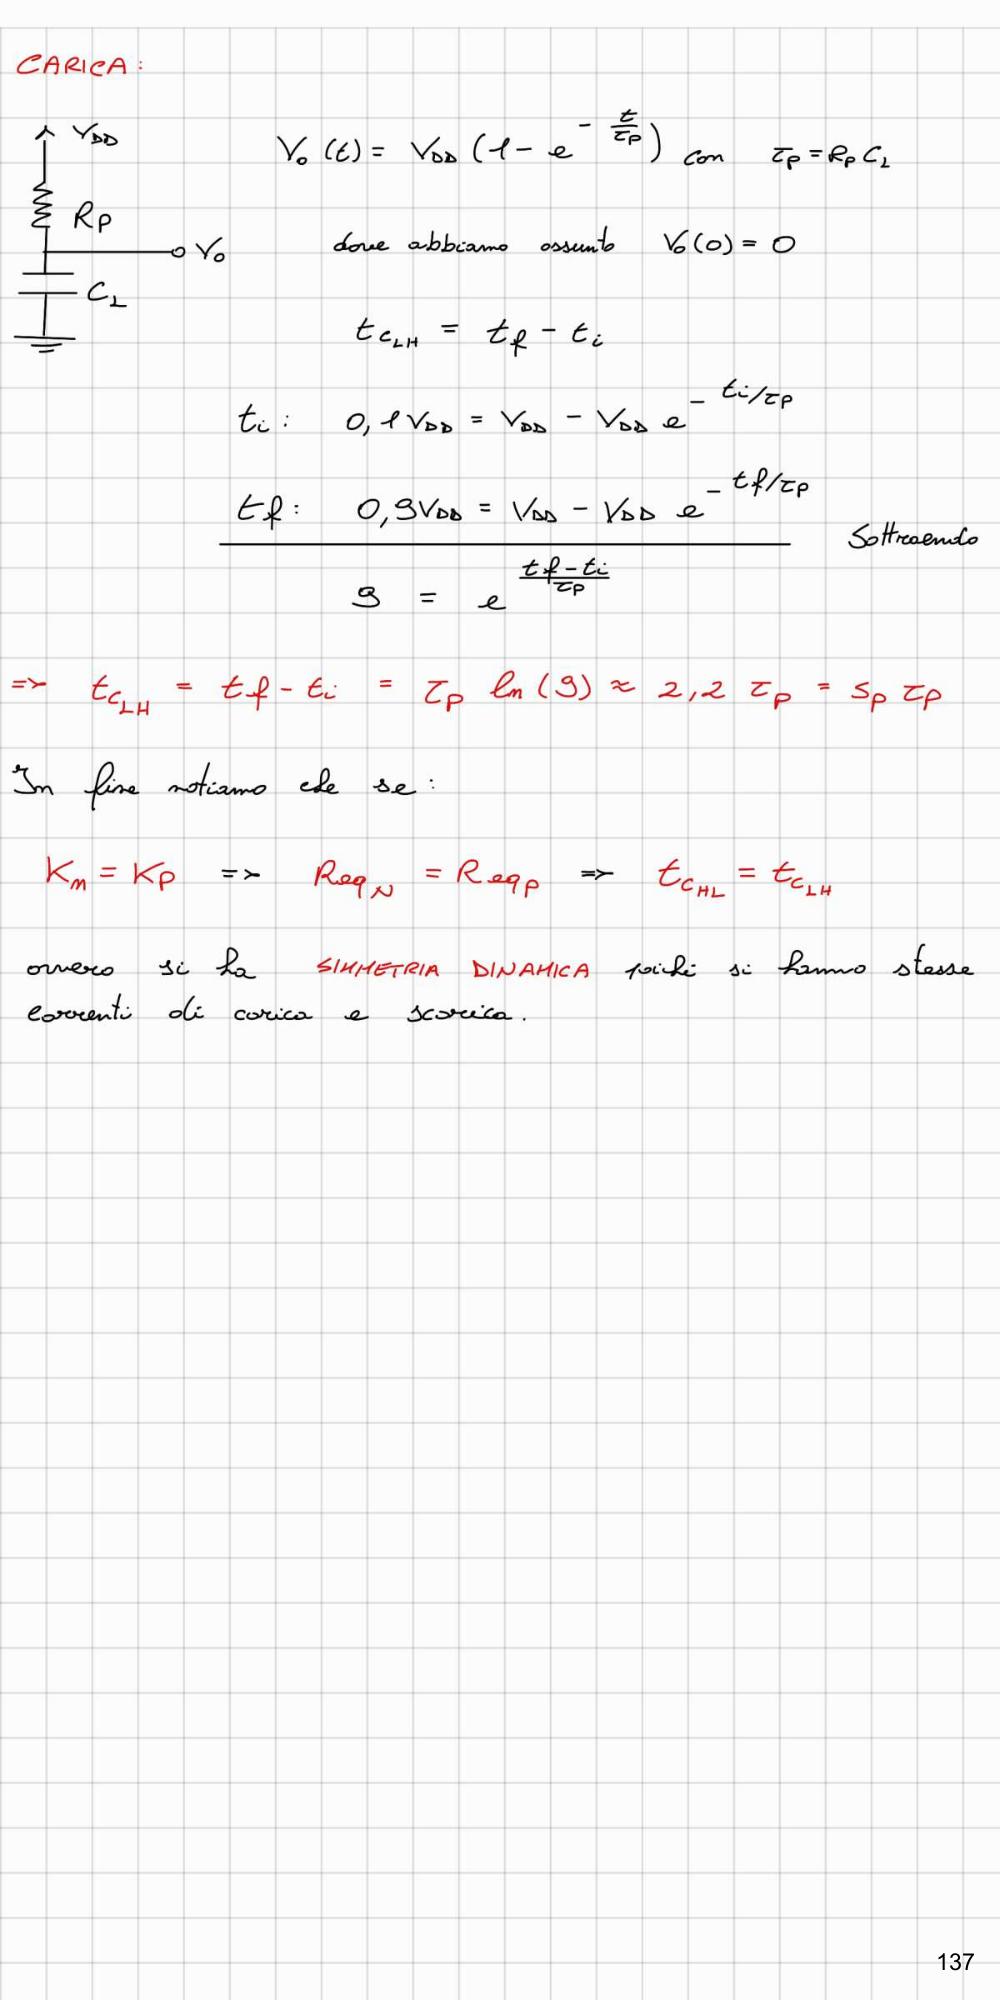 CARICA:
V_DD
V_o(t) = V_DD (1 - e^{-t/τ_P}) con τ_P = R_P C_L
R_P
V_o
dove abbiamo assunto V_o(0) = 0
C_L
t_{C_LH} = t_f - t_i
t_i: 0,1 V_DD = V_DD - V_DD e^{-t_i/τ_P}
t_f: 0,9 V_DD = V_DD - V_DD e^{-t_f/τ_P}
Sottraendo
9 = e^{(t_f - t_i)/τ_P}
=> t_{C_LH} = t_f - t_i = τ_P ln(9) ≈ 2,2 τ_P = S_P τ_P
In fine notiamo che se:
K_m = K_P => Req_N = Req_P => t_{C_HL} = t_{C_LH}
ovvero si ha SIMMETRIA DINAMICA poiché si hanno stesse
correnti di carica e scarica.
137